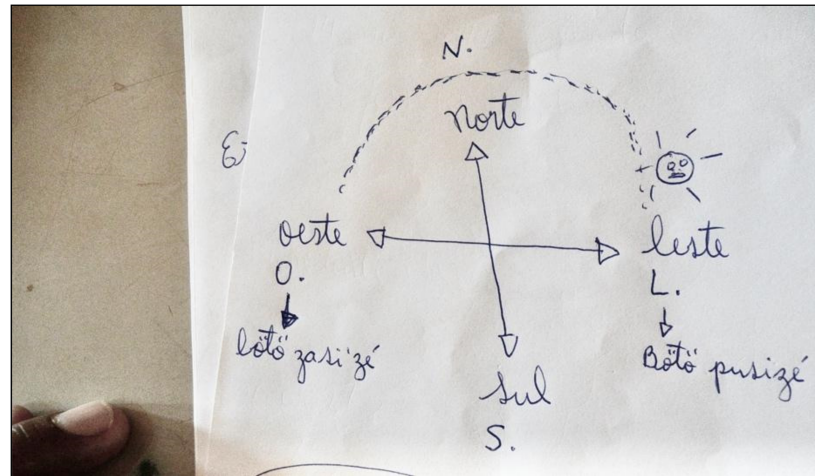 N.
Norte
oeste
O.
bötö zasizé
leste
L.
Bötö pusizé
Sul
S.